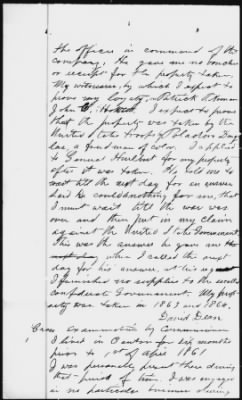 the officer in command of the
company, He gave me no voucher
or receipt for the property taken.
My witnesses, by which I expect to
prove my loyalty, Patrick
John I expect to prove
that the property was taken by the
United States troops
a freedman of color. I applied
to General Hurlbut for my property
after it was taken. He told me to
wait till the next day for an answer
said he could do nothing for me, that
I must wait till the war was
over and then put in my claim
against the United States Government.
This was the answer he gave me the
next day, when I called the next
day for his answer, at his
I furnished no supplies to the
confederate Government. My prop-
erty was taken in 1863 and 1864.
David Dean
Cross examination by Commissioner
I lived in Canton for six months
prior to 1st of April 1861
I was personally present there during
that period of time. I was engaged
in no particular business during